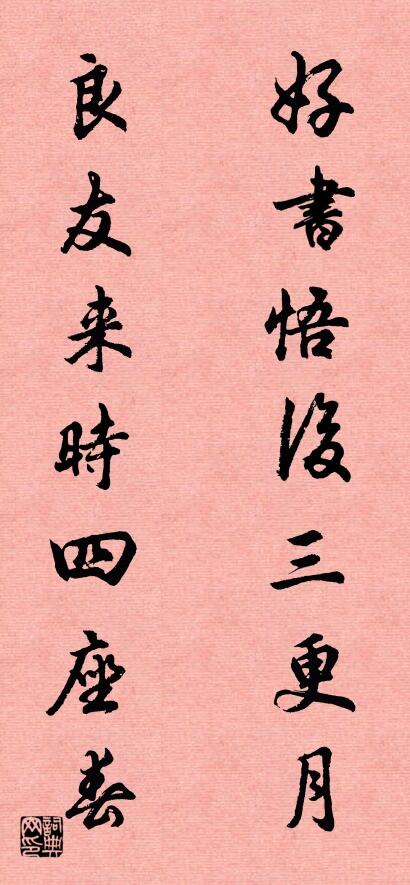 好書悟後三更月
良友来時四座春
詞典网印